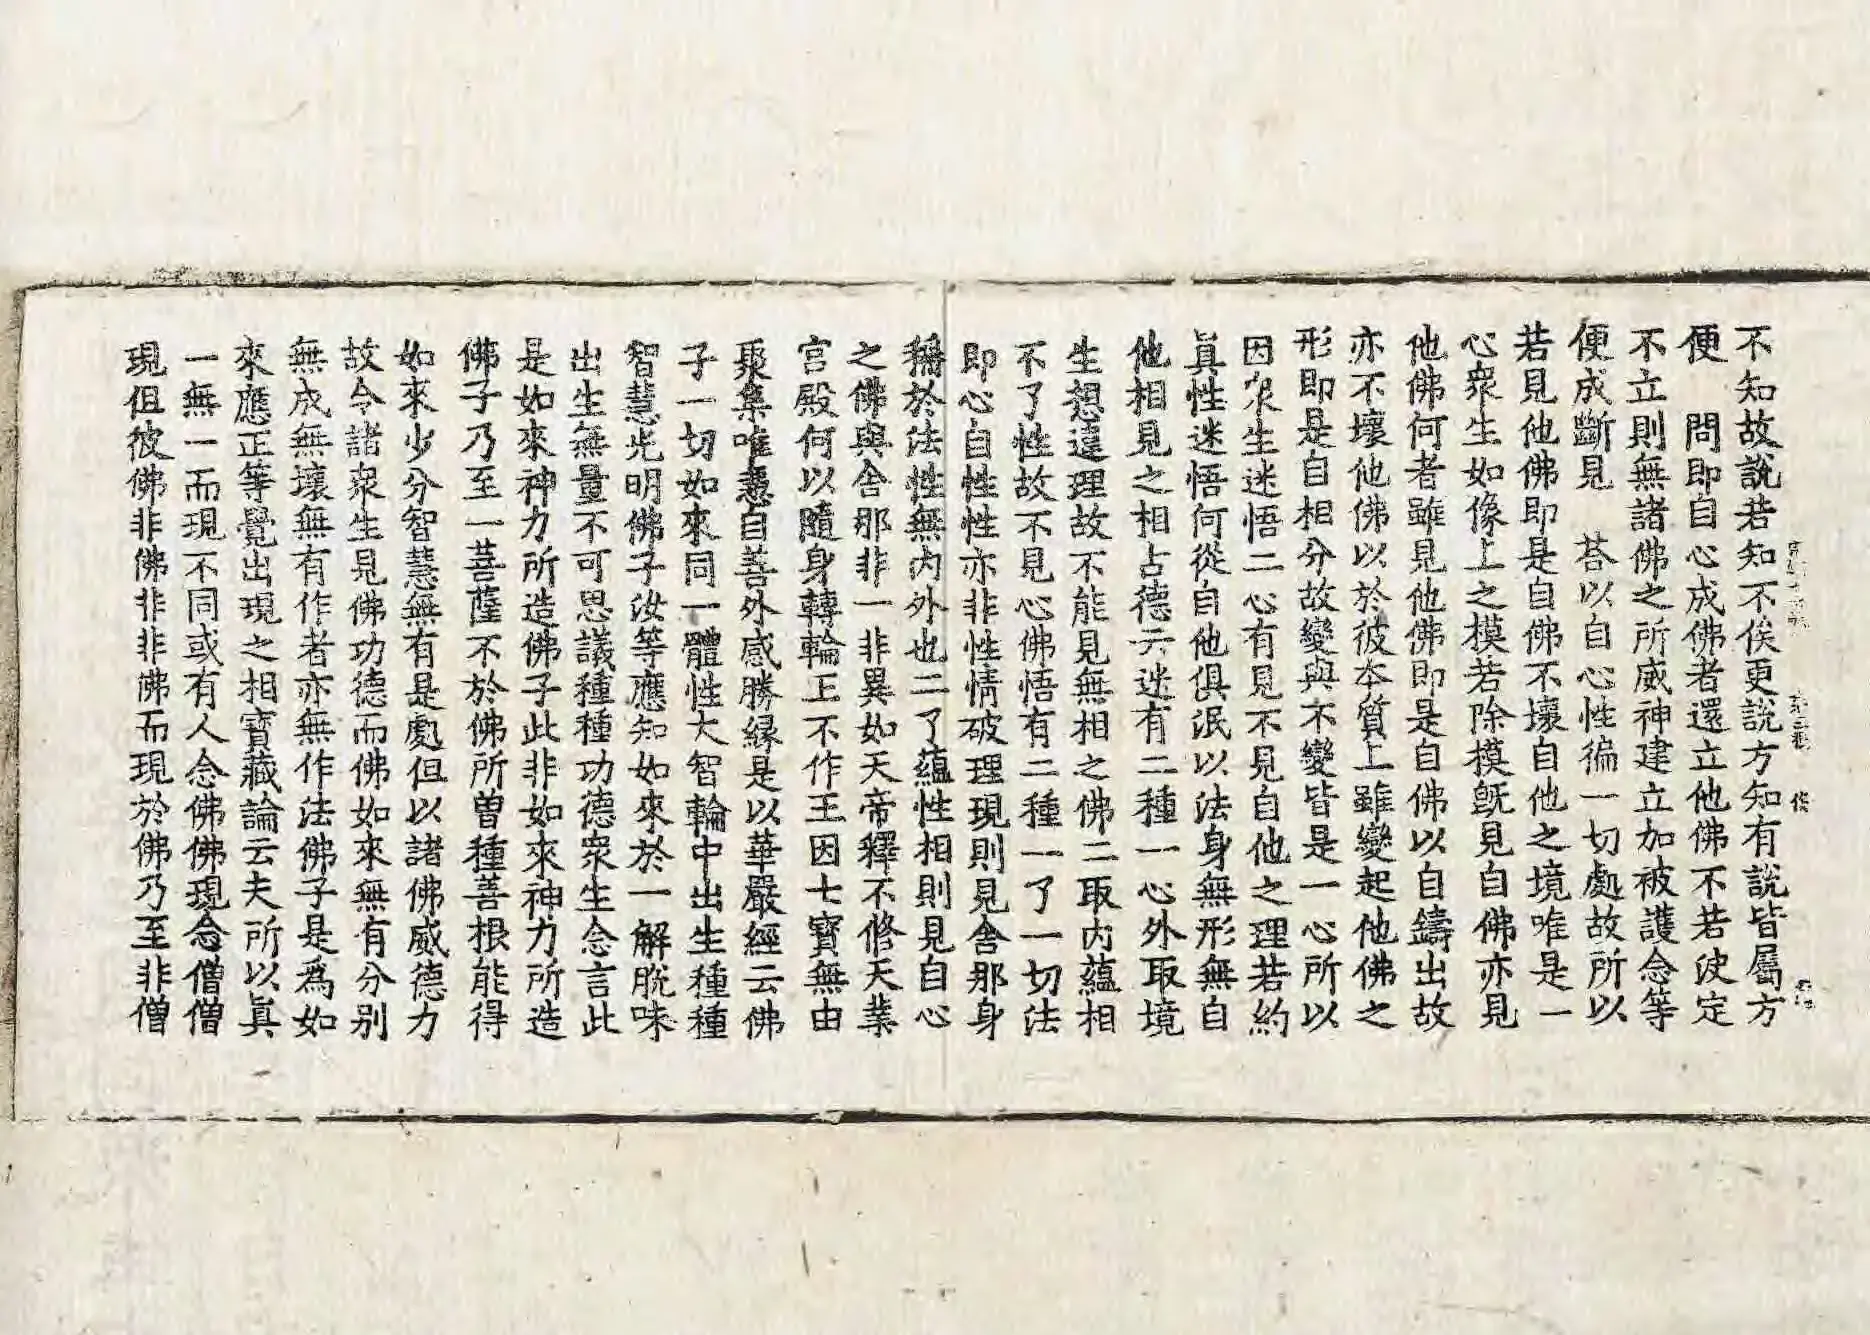 不知故說若知不俟更說方知有說皆屬方
便　問即自心成佛者還立他佛不若決定
不立則無諸佛之所威神建立加被護念等
便成斷見　荅以自心性徧一切處故所以
若見他佛即是自佛不壞自他之境唯是一
心衆生如像上之模若除模旣見自佛亦見
他佛何者雖見他佛即是自佛以自鑄出故
亦不壞他佛以於彼本質上雖變起他佛之
形即是自相分故變與不變皆是一心所以
因衆生迷悟二心有見不見自他之理若約
眞性迷悟何從自他俱泯以法身無形無自
他相見之相占德云迷有二種一心外取境
生想違理故不能見無相之佛二取內蘊相
不了性故不見心佛悟有二種一了一切法
即心自性性亦非性情破理現則見舍那身
稱於法性無內外也二了蘊性相則見自心
之佛與舍那非一非異如天帝釋不修天業
宮殿何以隨身轉輪王不作王因七寶無由
聚集唯憑自善外感勝緣是以華嚴經云佛
子一切如來同一體性大智輪中出生種種
智慧光明佛子汝等應知如來於一解脫味
出生無量不可思議種種功德衆生念言此
是如來神力所造佛子此非如來神力所造
佛子乃至一菩薩不於佛所曾種善根能得
如來少分智慧無有是處但以諸佛威德力
故令諸衆生見佛功德而佛如來無有分別
無成無壞無有作者亦無作法佛子是爲如
來應正等覺出現之相寶藏論云夫所以眞
一無一而現不同或有人念佛佛現念僧僧
現但彼佛非佛非非佛而現於佛乃至非僧